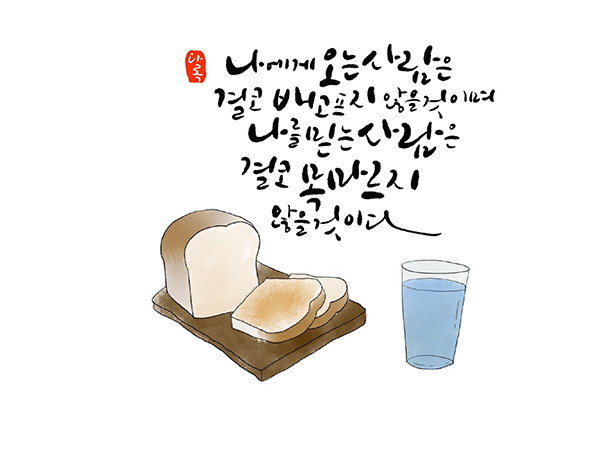 나에게 오는 사람은
결코 배고프지 않을 것이며
나를 믿는 사람은
결코 목마르지
않을 것이다